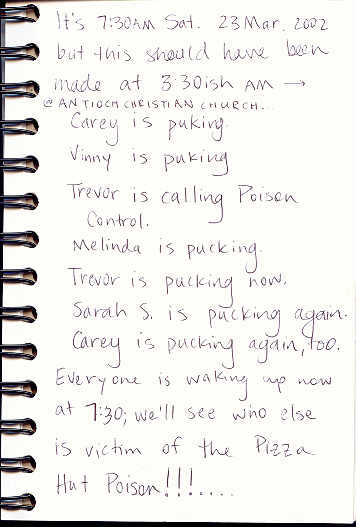 It's 7:30AM Sat. 23 Mar. 2002
but this should have been
made at 3:30ish AM →
@ ANTIOCH CHRISTIAN CHURCH...
Carey is puking.
Vinny is puking
Trevor is calling Poison
Control.
Melinda is pucking.
Trevor is pucking now.
Sarah S. is pucking again.
Carey is pucking again, too.
Everyone is waking up now
at 7:30; we'll see who else
is victim of the Pizza
Hut Poison!!!.....